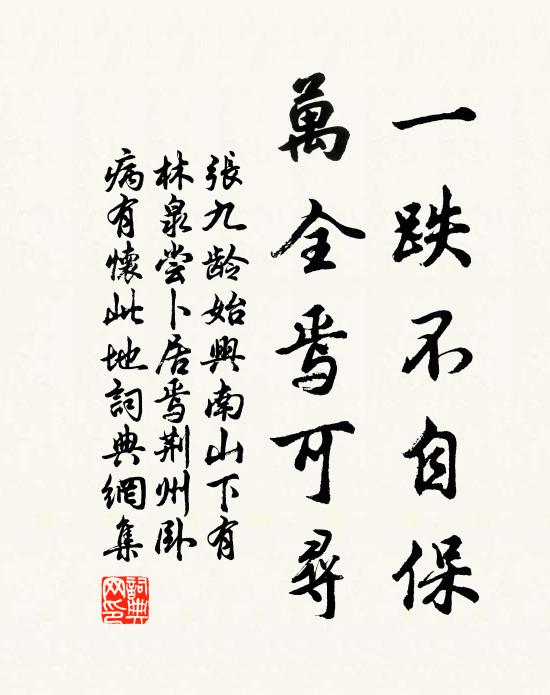 一跌不自保
萬全焉可尋
張九龄始興南山下有
林泉尝卜居焉荆州卧
病有懷此地詞典網集
詞典
网印